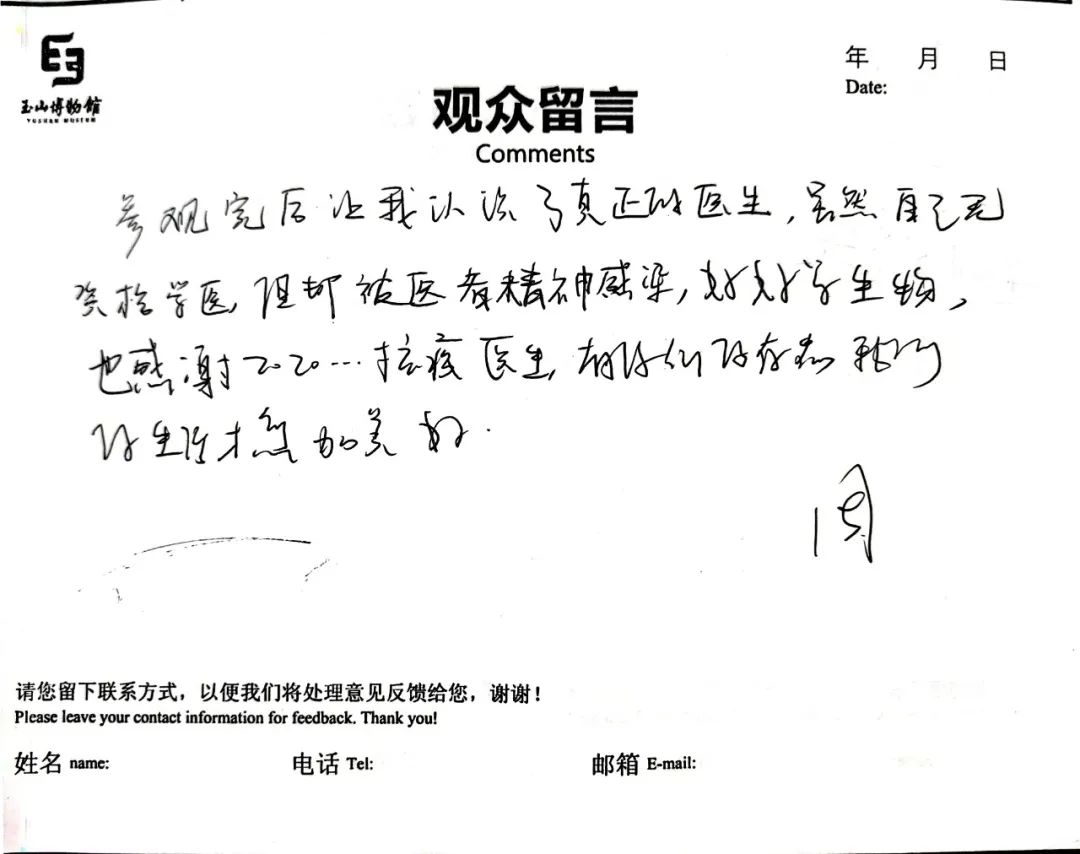 玉山博物馆
YUSHAN MUSEUM
年 月 日
Date:
观众留言
Comments
参观完后让我认识了真正的医生，虽然自己无
资格学医，但却被医者精神感染，好好学生物，
也感谢2020…抗疫医生，有你们的存在我们
的生活才会更加美好.
周
请您留下联系方式，以便我们将处理意见反馈给您，谢谢！
Please leave your contact information for feedback. Thank you!
姓名 name: 电话 Tel: 邮箱 E-mail: